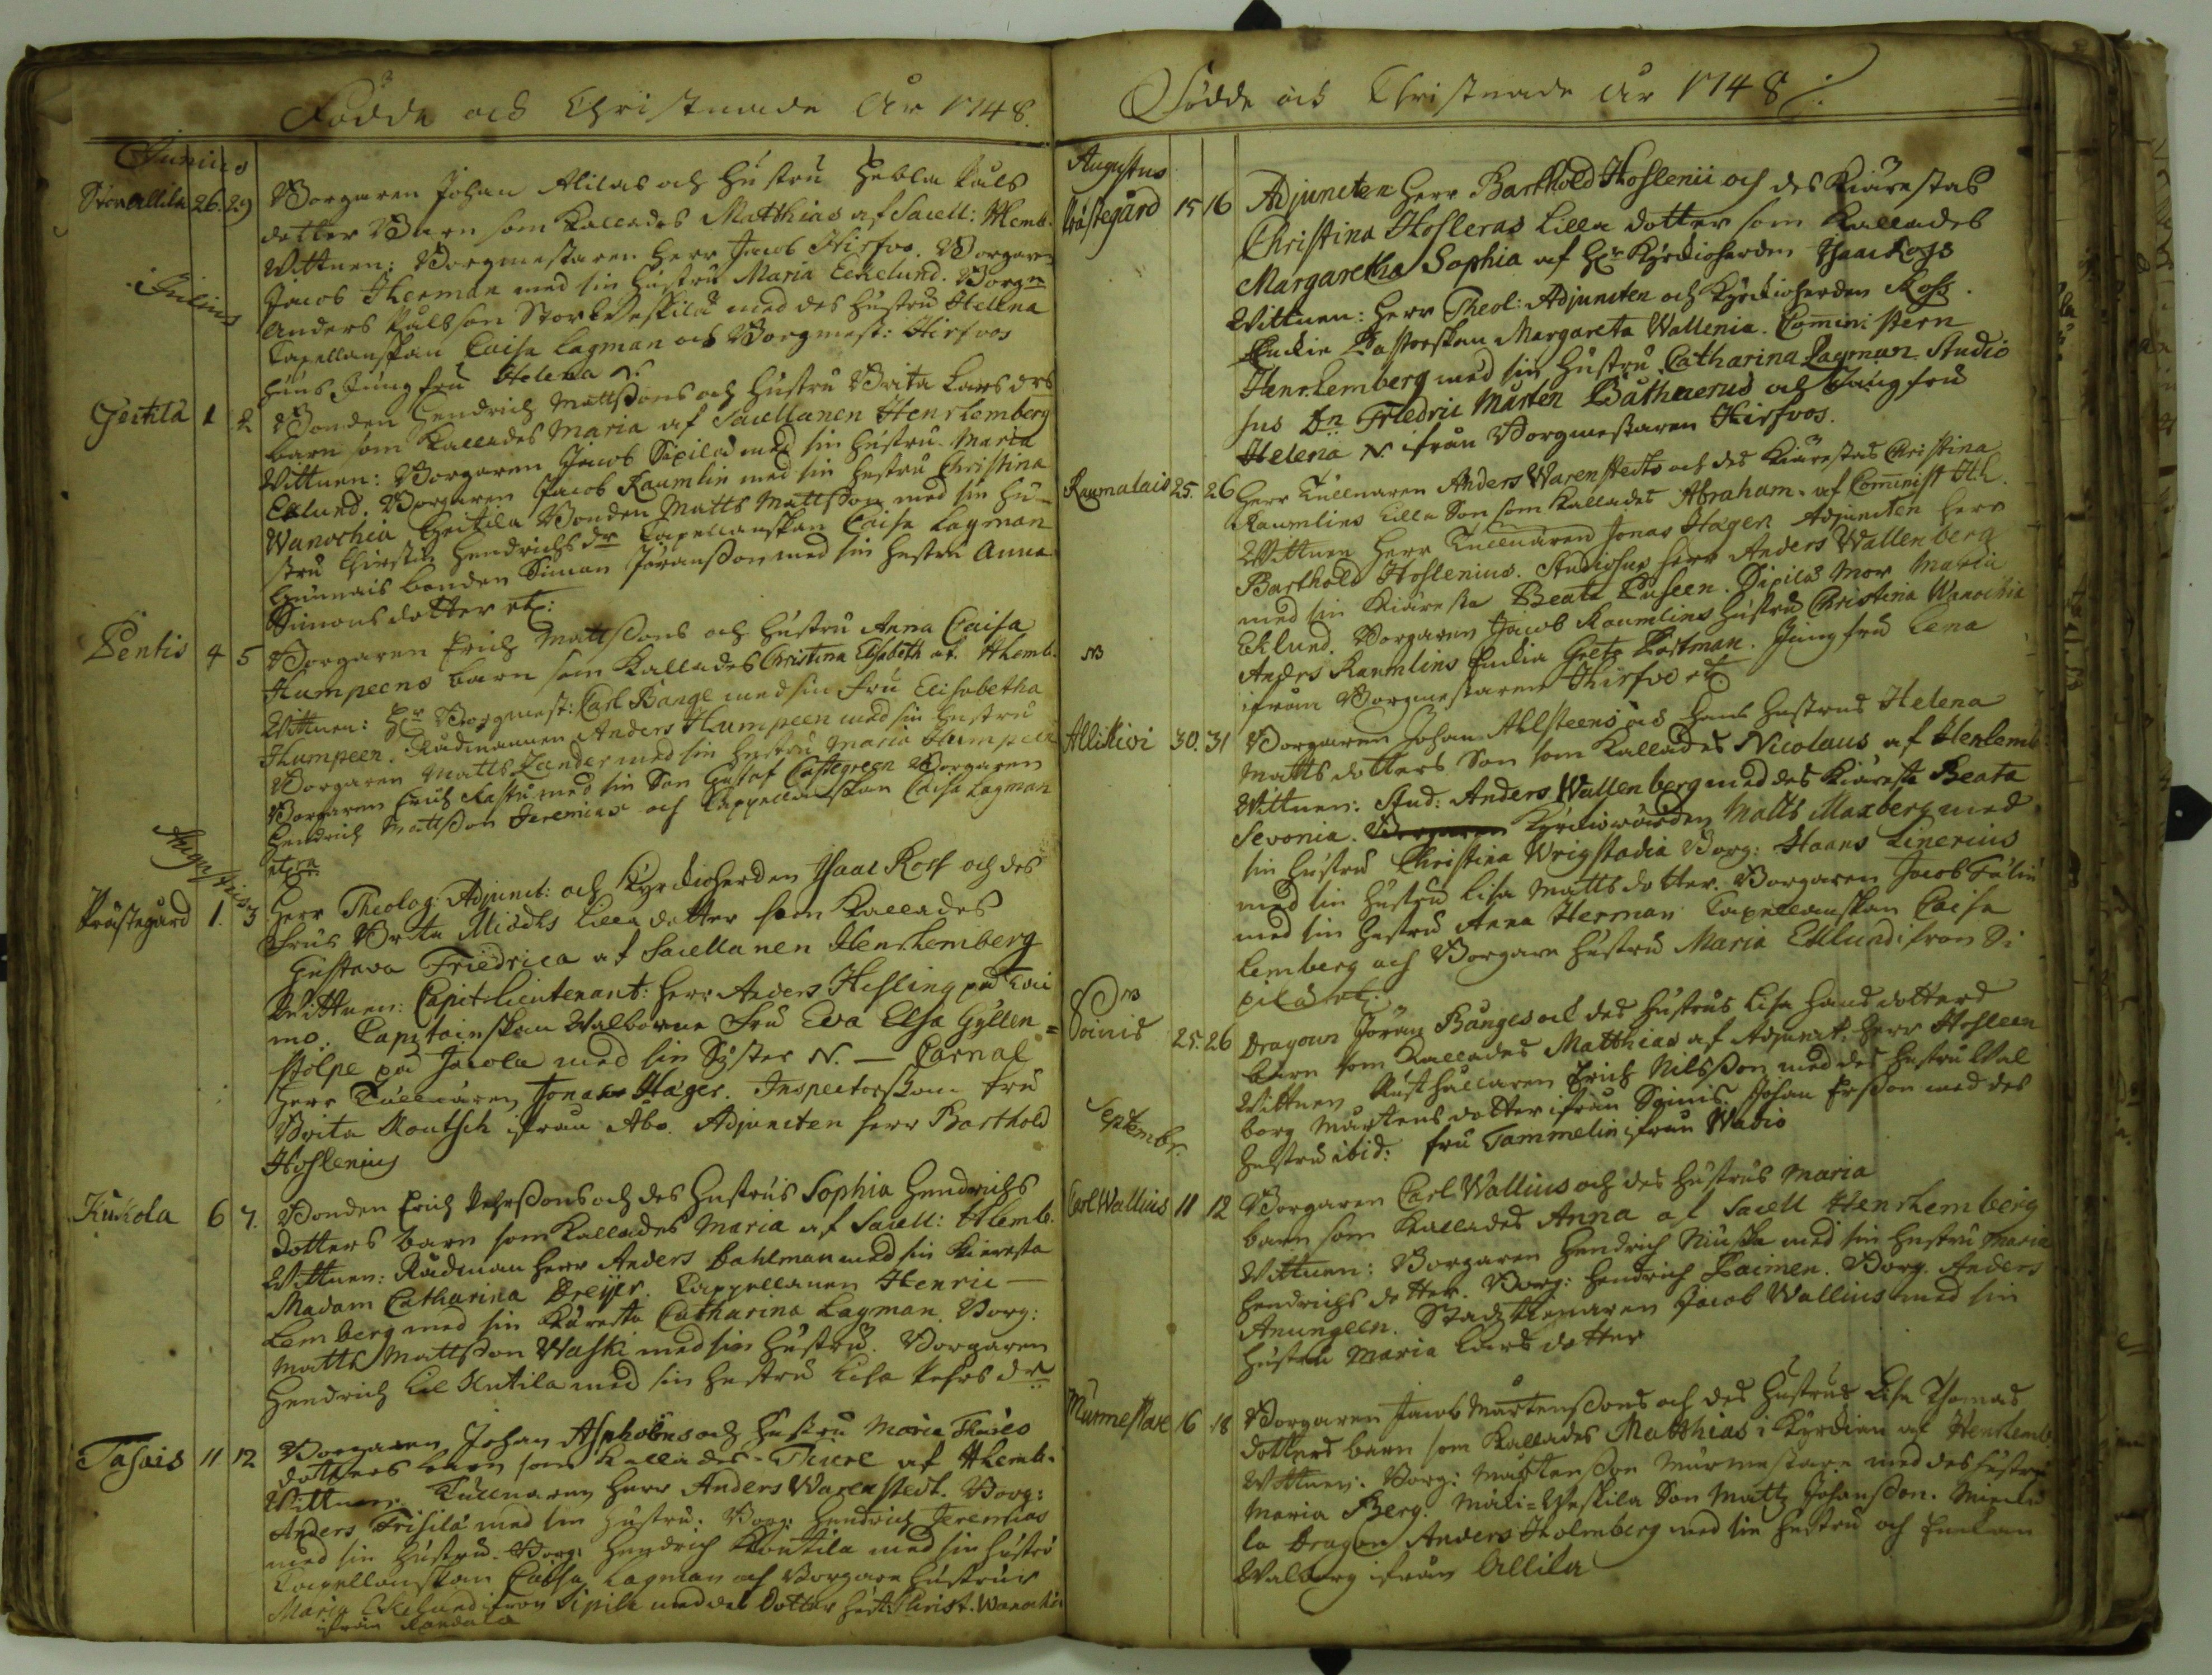 Födde och Christnade År 1748.
Junius
Stor Allila 26. 29 Borgaren Johan Alilas och hustru Hebla Påls
dotter Barn som kallades Matthias af Sacell: HLemb.
Wittnen: Borgmestaren Herr Jacob Hirfvo. Borgaren
Jacob Therman med sin hustru Maria Eckelund. Borg:n
Julius
Anders Pålsson Stor Veskilä med des hustru Helena
Capellanskan Caisa Lagman och Borgmest: Hirfvos
huus Jungfru Helena N.
Geitilä 1 2 Bonden Hendrich Mattssons och hustru Brita Lars drs
barn som kallades Maria af Sacellanen Henr Lemberg
Wittnen: Borgaren Jacob Sipilä med sin hustru Maria
Eklund. Borgaren Jacob Raumlin med sin hustru Christina
Wanochia Geitila Bonden Matts Mattsson med sin hu-
stru Chirstin Hendrichs dr Capellanskan Caisa Lagman
bonden Simon Jöransson med sin hustru Anna
Simonsdotter etc:
Pentis 4 5 Borgaren Erich Mattssons och hustru Anna Caisa
Humpeens barn som kallades Christina Elisabeth af HLemb.
Wittnen: Hr Borgmest: Carl Bange med sin fru Elisabetha
Humpeen. Rådmannen Anders Humpeen med sin hustru
Borgaren Matts Zander med sin hustru Maria Humpeen
Borgaren Erich Kastu med sin Son Gustaf Castegreen Borgaren
Hendrich Mattsson Jeremias och Cappellanskan Caisa Lagman
etc:ra
Augustus
Prästegård 1. 3 Herr Theolog: Adjunct: och Kyrckioherden Isaac Ross och des
Frus Brita Miödhs lilla dotter som kallades
Gustava Friedrica af Sacellanen Henr Lemberg
Wittnen: Capit Lieutenant: Herr Anders Hesling på
mo. Capitainskan Walborne Fru Eva Elsa Gyllen=
stolpe på Jacola med sin Syster N. — Carnal
Herr Tullnären Jonas Hager. Inspectorskan Fru
Brita Routsch ifrån Åbo. Adjuncten Herr Barthold
Hoslenius
Kuckola 6 7. Bonden Erich Pehrssons och des hustrus Sophia Hendrichs
dotters barn som kallades Maria af Sacell: HLemb.
Wittnen: Rådman Herr Anders Dahlman med sin Kieresta
Madam Catharina Dreyer. Cappellanen Henric
Lemberg med sin Käresta Catharina Lagman. Borg:
Matts Mattsson Waski med sin hustru. Borgaren
Hendrich Lill Kutila med sin hustru Lisa Pehrs dr
Tasais 11 12 Borgaren Johan Alpholins och hustru Maria Thures
dotters barn som kallades Thure af HLemb.
Wittnen. Tullnaren Herr Anders Warenstedt. Borg:
Anders Frisilä med sin hustru. Borg: Hendrich Jeremias
med sin hustru. Borg: Hendrich Koutila med sin hustru
Capellanskan Caisa Lagman och Borgare hustrun
Maria Ekelund ifrån Sipilä med des Dotter hust: Christ. Wanochia
ifrån Randala
Födde och Christnade År 1748
Augustus
Prästegård 15 16 Adjuncten Herr Barthold Hoslenii och des Kiärestas
Christina Hosleras lilla dotter som kallades
Margaretha Sophia af Hr Kyrckioherden Isaac Ross
Wittnen: Herr Theol: Adjuncten och Kyrckioherden Ross.
Enckie Pastorskan Margareta Wallenia. Commini stern
Henr. Lemberg med sin hustru Catharina Lagman. Studio
sus Dn Friedric Mårten Bäthnerus och Jungfru
Helena N ifrån Borgmestaren Hirfvos.
Raumalais 25. 26 Herr Tullnaren Anders Warenstedts och des Kiärestas Christina
Raumlins lilla Son som kallades Abraham af Comminist HL.
Wittnen Herr Tullnären Jonas Hager Adjuncten Herr
Barthold Hoslenius. Studiosus Herr Anders Wallenberg
med sin Kiäresta Beata Puseen. Sipiläs Mor Maria
Eklund. Borgaren Jacob Raumlins hustru Christina Wanochia
NB Anders Raumlins Enckia Greta Kostman. Jungfru Lena
ifrån Borgmestaren Hirfvo etc
Allikivi 30. 31 Borgaren Johan Ahlsteens och hans hustrus Helena
Matts dotters Son som kallades Nicolaus af Henlemb
Wittnen: Stud: Anders Wallenberg med des Kiäresta Beata
Sevonia. Kyrckiowärden Matts Maxberg med
sin hustru Christina Wrigstadia Borg: Haans Linerius
med sin hustru Lisa Matts dotter. Borgaren Jacob Fälin
med sin hustru Anna Herman Capellanskan Caisa
Lemberg och Borgare hustru Maria Eklund ifrån Si
pilä etc.
NB
Soinis 25. 26 Dragoun Göran Bånges och des hustrus Lisa Hans dotters
barn som kallades Matthias af Adjunct: Herr Hosleen
Wittnen Rusthållaren Erich Nilsson med des hustru Wal
borg Mårtens dotter ifrån Soinis. Johan Ersson med des
hustru ibid: fru Tammelin ifrån Wadis
Septembr.
Carl Wallius 11 12 Borgaren Carl Wallius och des hustrus Maria
barn som kallades Anna af Sacell Henr Lemberg
Wittnen: Borgaren Hendrich Niuska med sin hustru Maria
Hendrichs dotter. Borg: Hendrich Paimen. Borg. Anders
Anungeen. Stadz tienaren Jacob Wallius med sin
hustru Maria Lars dotter
Murmestare 16 18 Borgaren Jacob Mårtenssons och des hustrus Lisa Thomas
dotters barn som kallades Matthias i Kyrckian af Henrlemb
Wittnen: Borg: Mårtensson Murmestare med des hustru
Maria Berg. Mäki=Veskilä Son Matts Johansson.
la Dragon Anders Holmberg med sin hustru och Enckan
Walborg ifrån Allila